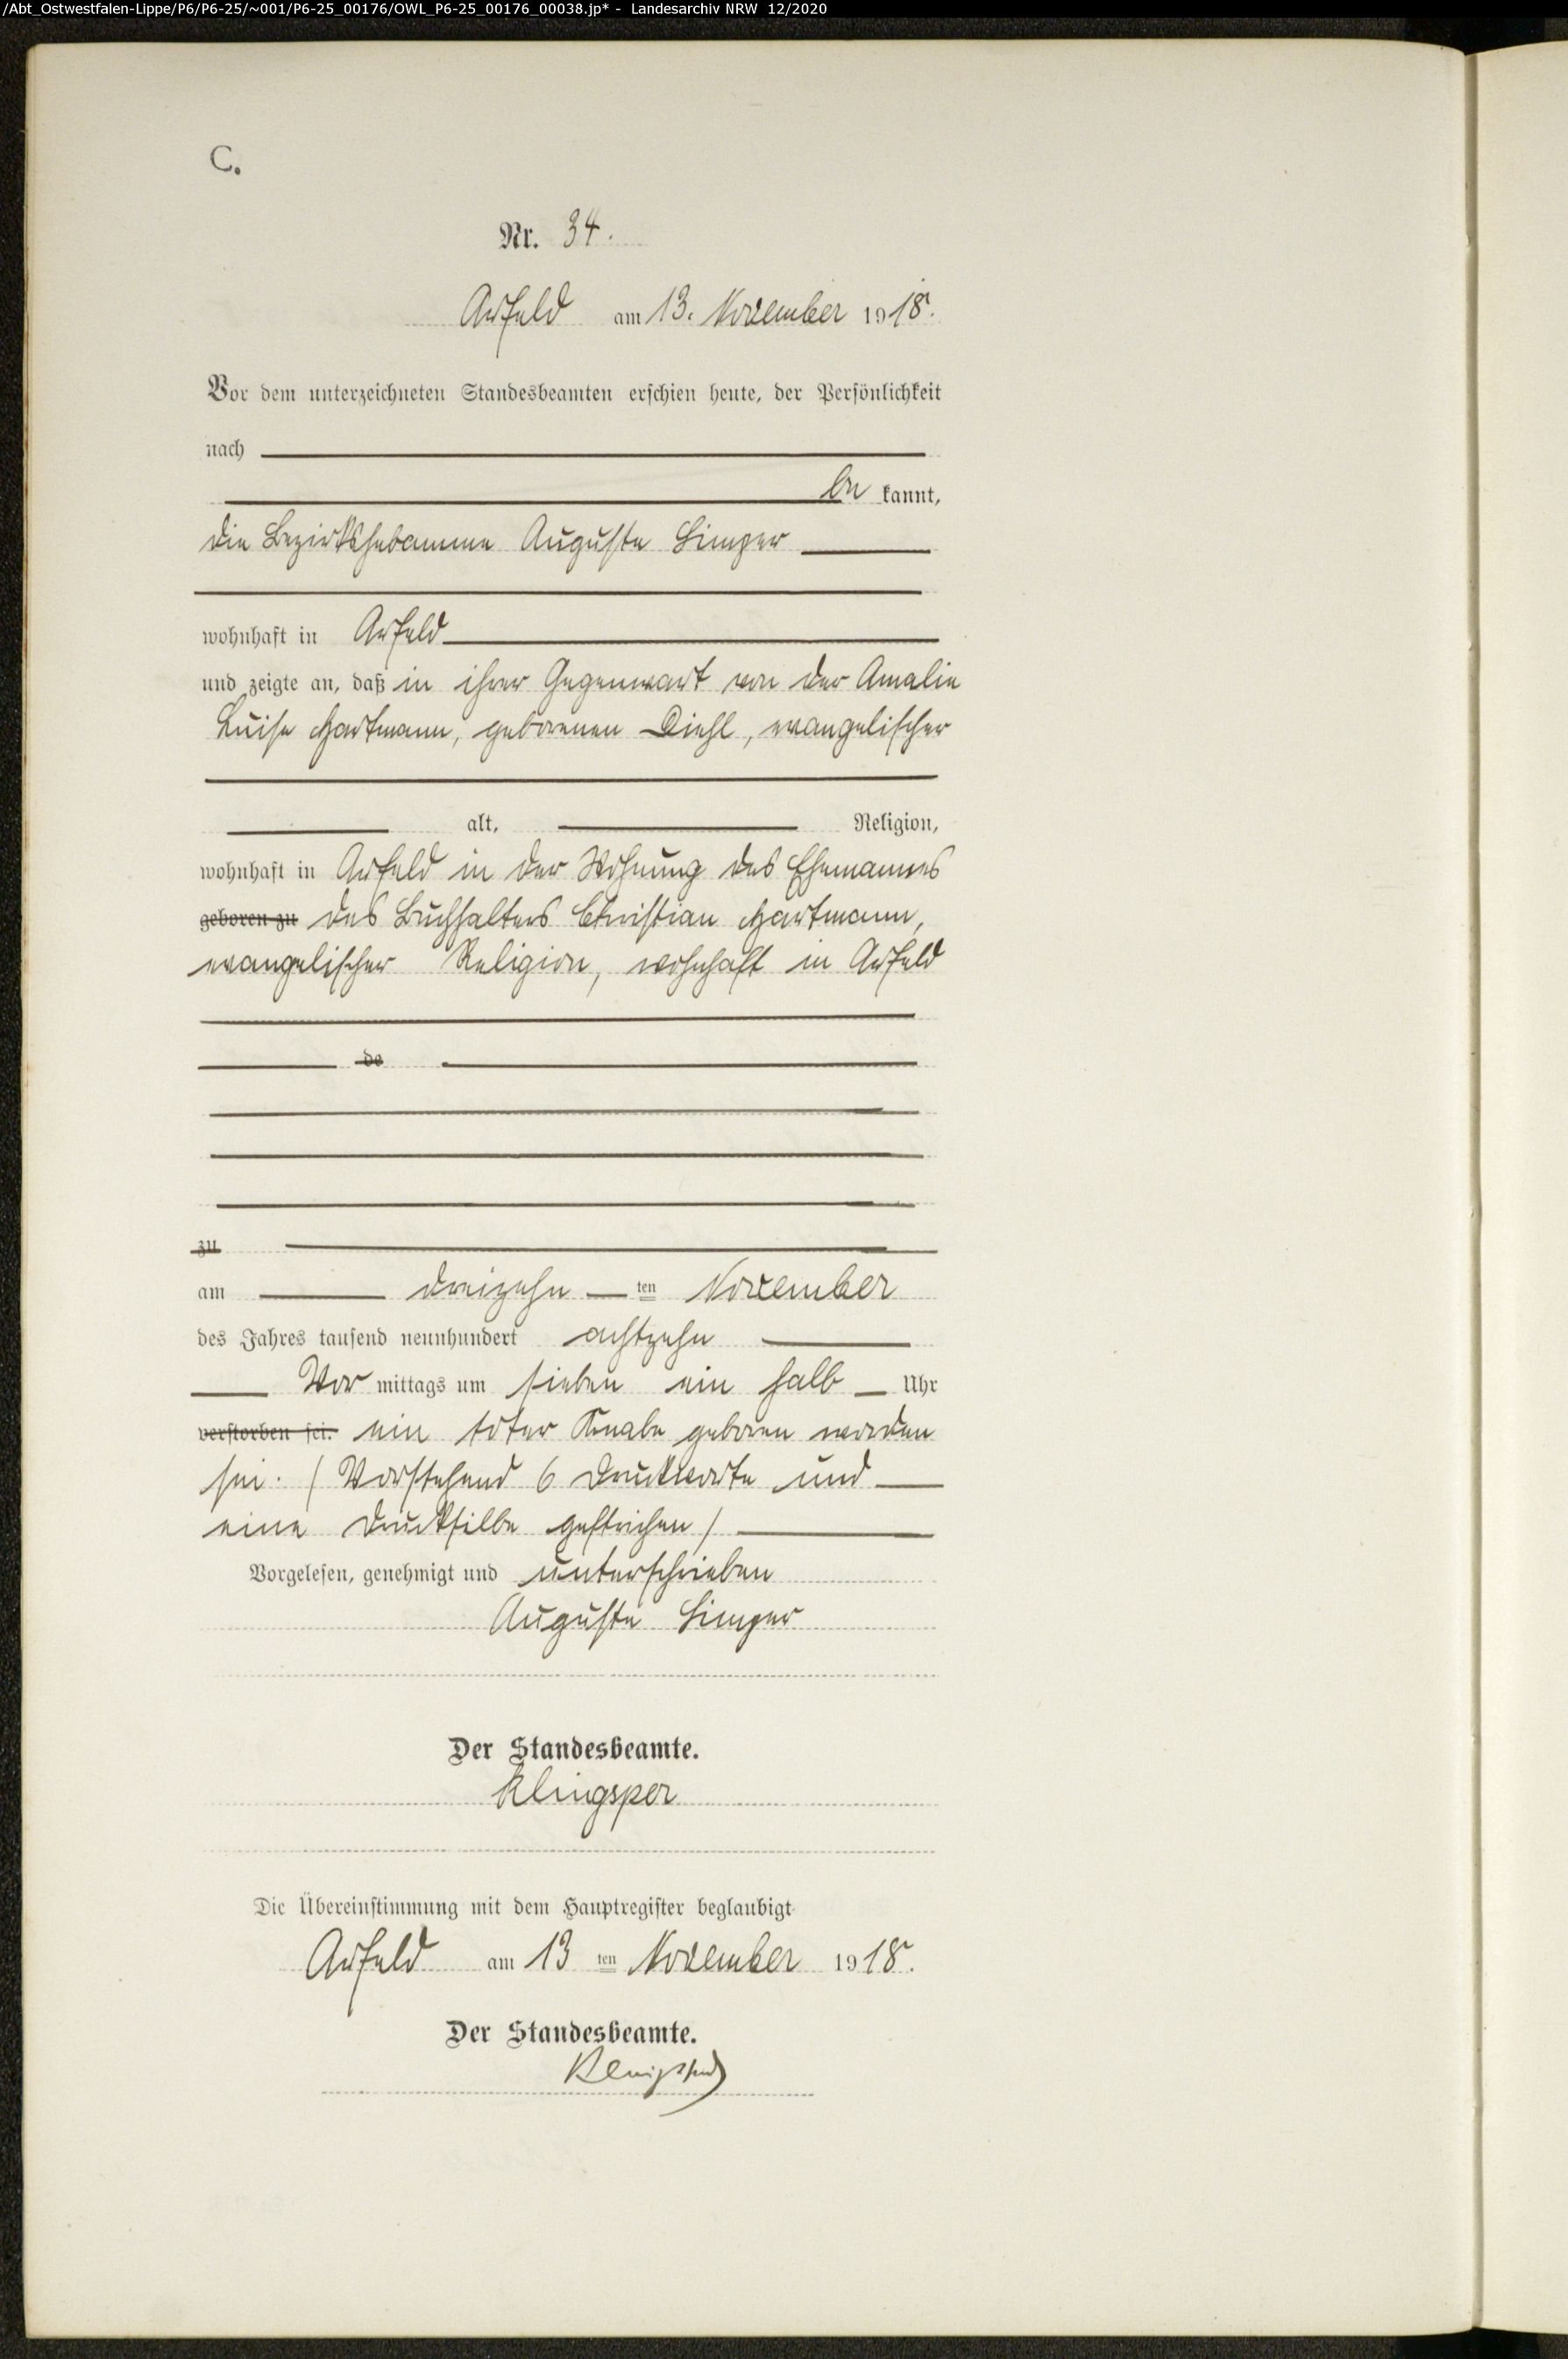 /Abt_Ostwestfalen-Lippe/P6/P6-25/~001/P6-25_00176/OWL_P6-25_00176_00038.jp* - Landesarchiv NRW 12/2020
C.
Nr. 34.
Arfeld am 13. November 1918.
Vor dem unterzeichneten Standesbeamten erschien heute, der Persönlichkeit
nach
be kannt,
die Bezirkshebamme Auguste Simper
wohnhaft in Arfeld
und zeigte an, daß in ihrer Gegenwart von der Amalie
Luise Hartmann, geborenen Diehl, evangelischer
alt, Religion,
wohnhaft in Arfeld in der Wohnung des Ehemannes
geboren zu des Buchhalters Christian Hartmann,
evangelischer Religion, wohnhaft in Arfeld
de
zu
am dreizehn ten November
des Jahres tausend neunhundert achtzehn
Vor mittags um sieben ein halb Uhr
verstorben sei. ein toter Knabe geboren worden
sei. (Vorstehend 6 Druckworte und
eine Drucksilbe gestrichen)
Vorgelesen, genehmigt und unterschrieben
Auguste Simper
Der Standesbeamte.
Klingspor
Die Übereinstimmung mit dem Hauptregister beglaubigt
Arfeld am 13 ten November 1918.
Der Standesbeamte.